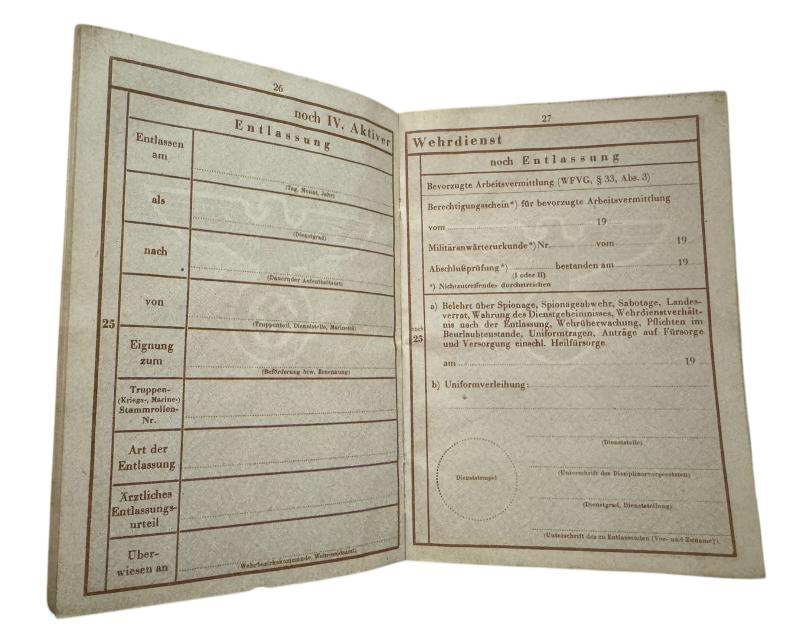 26
noch IV. Aktiver
Entlassung
Entlassen
am
(Tag, Monat, Jahr)
als
(Dienstgrad)
nach
(Dauernder Aufenthaltsort)
von
(Truppenteil, Dienststelle, Marineteil)
25
Eignung
zum
(Beförderung bzw. Ernennung)
Truppen-
(Kriegs-, Marine-)
Stammrollen-
Nr.
Art der
Entlassung
Ärztliches
Entlassungs-
urteil
Über-
wiesen an
(Wehrbezirkskommando, Wehrmeldeamt)
27
Wehrdienst
noch Entlassung
Bevorzugte Arbeitsvermittlung (WFVG, § 33, Abs. 3)
Berechtigungsschein*) für bevorzugte Arbeitsvermittlung
vom 19
Militäranwärterurkunde*) Nr. vom 19
Abschlußprüfung*) bestanden am 19
(I oder II)
*) Nichtzutreffendes durchstreichen
noch
25
a) Belehrt über Spionage, Spionageabwehr, Sabotage, Landes-
verrat, Wahrung des Dienstgeheimnisses, Wehrdienstverhält-
nis nach der Entlassung, Wehrüberwachung, Pflichten im
Beurlaubtenstande, Uniformtragen, Anträge auf Fürsorge
und Versorgung einschl. Heilfürsorge
am 19
b) Uniformverleihung:
(Dienststelle)
Dienststempel
(Unterschrift des Disziplinarvorgesetzten)
(Dienstgrad, Dienststellung)
(Unterschrift des zu Entlassenden [Vor- und Zuname])